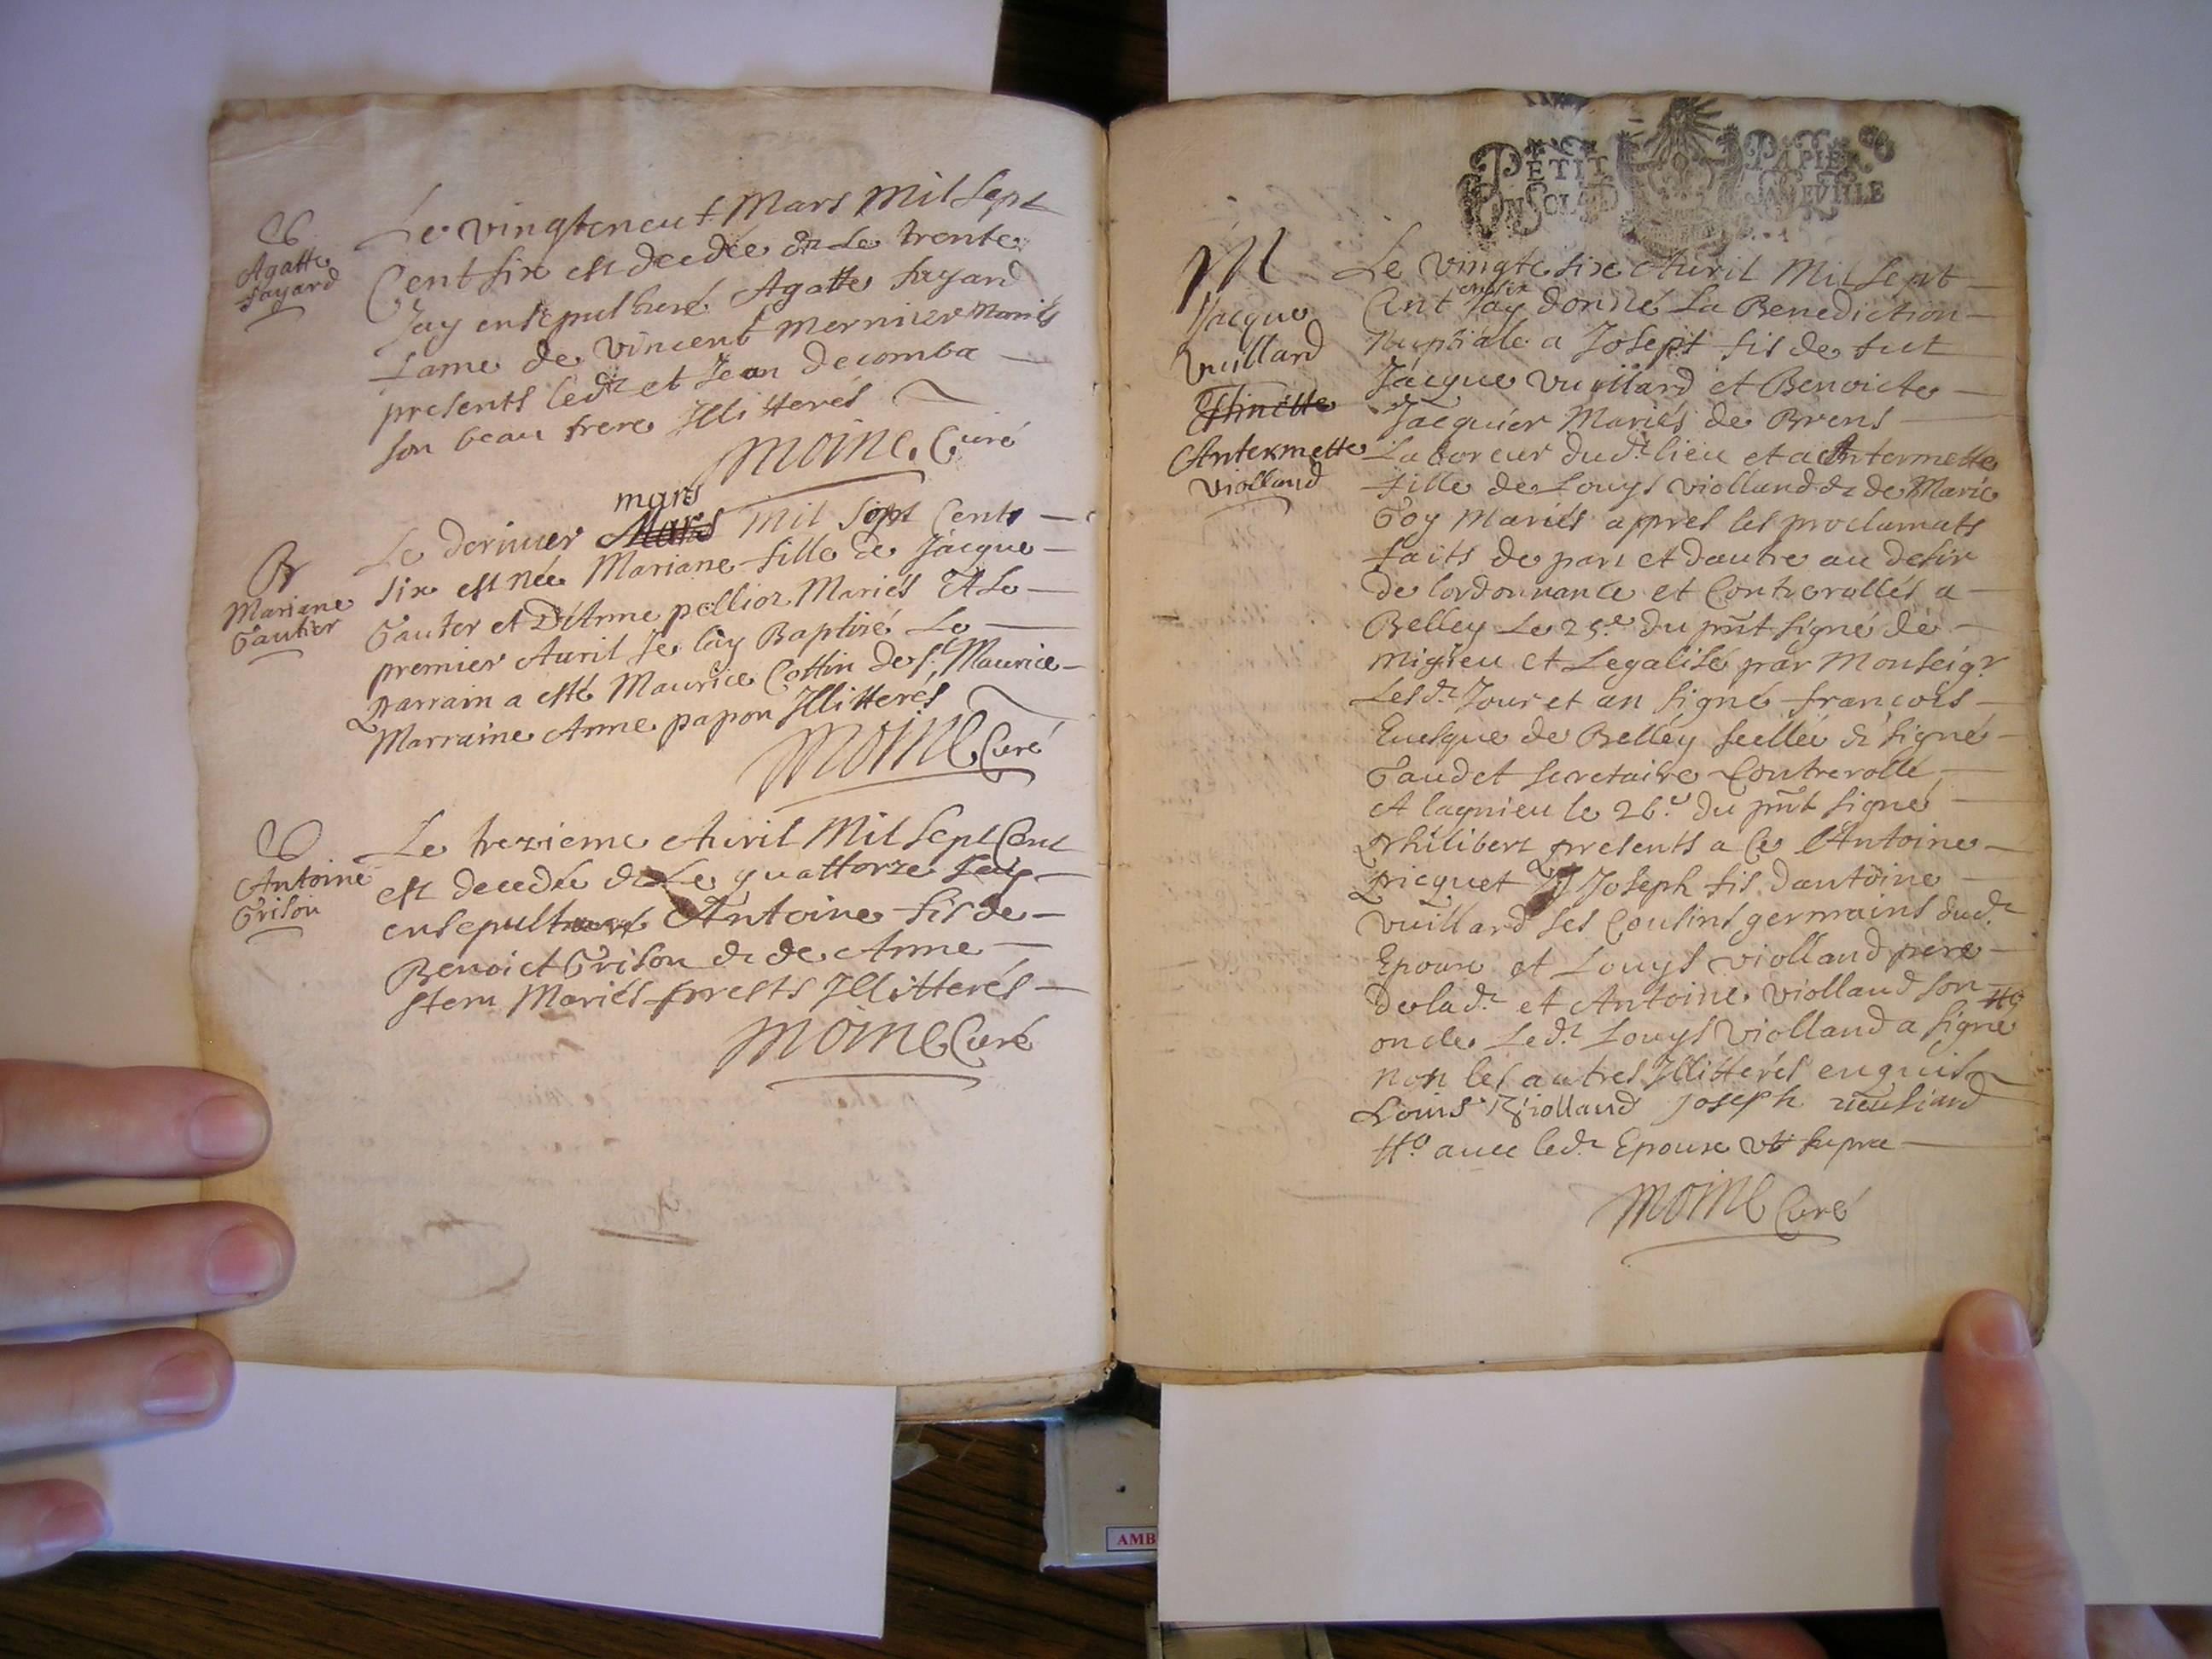 Agatte
fayard
Le vingteneuf Mars Mil Sept
Cent six est decedée & Le trente
Jay ensepulturé Agatte fayard
fame de Vincent Mernier Mariés
presents led.t et Jean Decomba
son beau frere Illitterés
Moine Curé
Mariane
Gautier
mars
Le dernier Mars Mil Sept Cents
six est née Mariane fille de Jacque
Gauter et D'Anne pellior Mariés Et Le
premier Auril Je lay Baptisé Le
parrain a esté Maurice Cottin de s.t Maurice
Marraine Anne papon Illitterés
Moine Curé
Antoine
Grison
Le trezieme Auril Mil Sept Cent
est decedée & Le quattorze Jay
ensepulturé Antoine fis de
Benoict Grison & de Anne
stern Mariés prests Illitterés
Moine Curé
PETIT PAPIER
UN SOL LA FEVILLE
M
Jacque
Vuillard
Antermette
Violland
Le Vingte six Auril Mil Sept
Cent six Jay donné La Benediction
Nuptiale a Josept fis de fut
Jacque Vuillard et Benoicte
Jacquier Mariés de Brens
Laboreur dud.t lieu et a Antermette
fille de Louys Violland & de Marie
Goy Mariés appres les proclamats
faits de part et dautre au desir
de lordonnance et Controrollés a
Belley Le 25.e du pñt signé de
Migieu et Legalisé par Monseigr
Lesd.t Jour et an signé françois
Euesque de Belley scellée & signé
Gaudet secretaire Contrerollé
A lagnieu le 26.e du pñt signé
Philibert presents a Ce Antoine
Pricquet Joseph fis dantoine
Vuillard ses Cousins germains dud.t
Epoux et Louys Violland pere
de lad.t et Antoine Violland son
oncle Led.t Louys Violland a signé
non les autres Illitterés enquis
Louis Violland Joseph
auec led.t Epoux Vt supra
Moine Curé
AMB